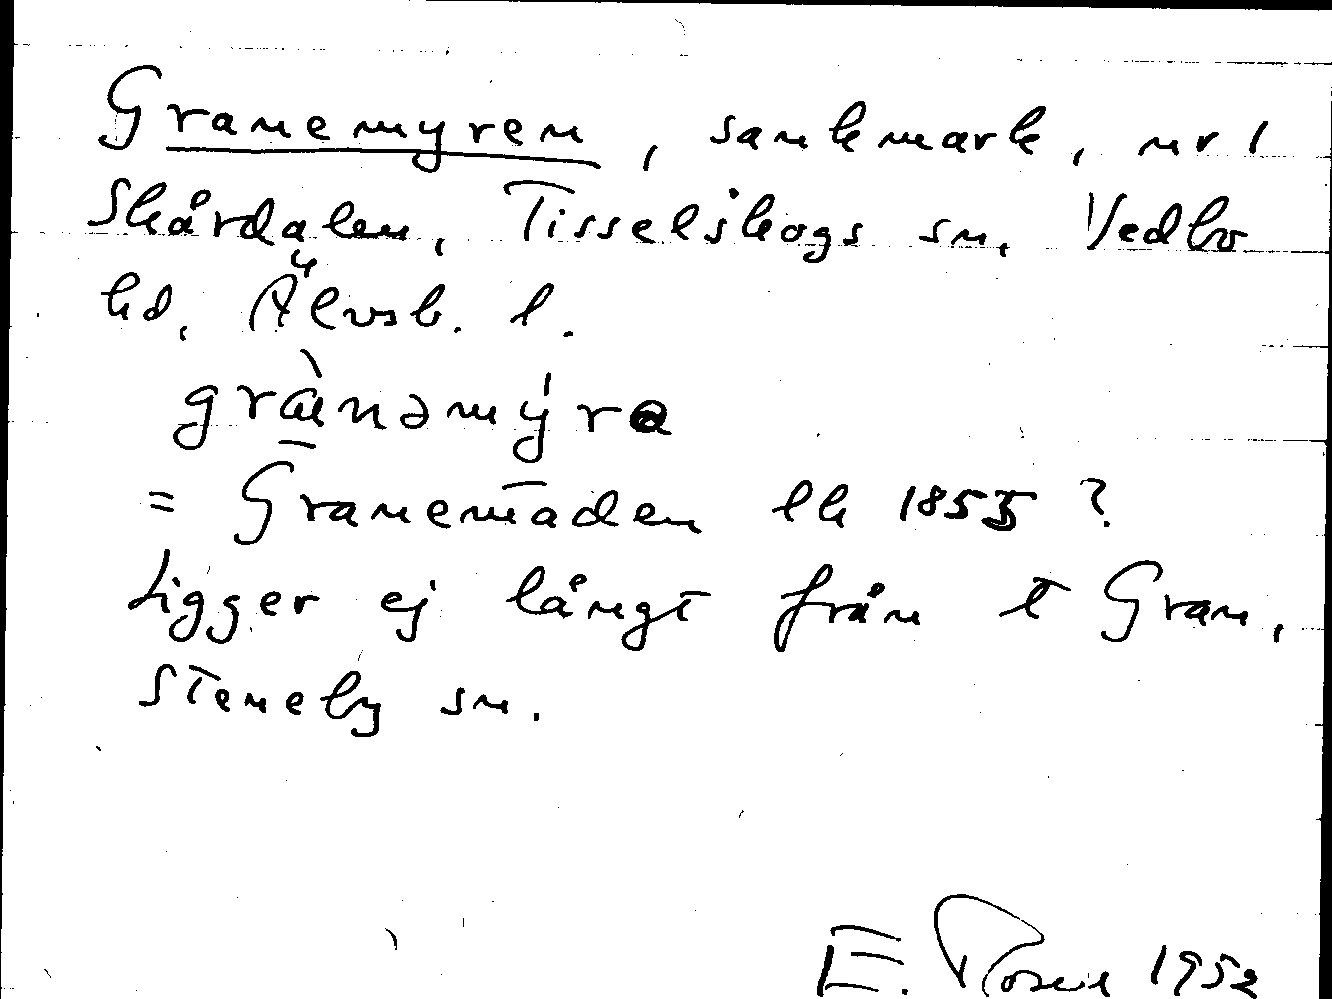 Granemyren, sankmark, nr 1
Skårdalen, Tisselskogs sn, Vedbo
hd, Älvsb. l.
grànəmýra
= Granemaden lk 1855 ?
Ligger ej långt från t Gran,
Steneby sn.
E. Rosell 1952